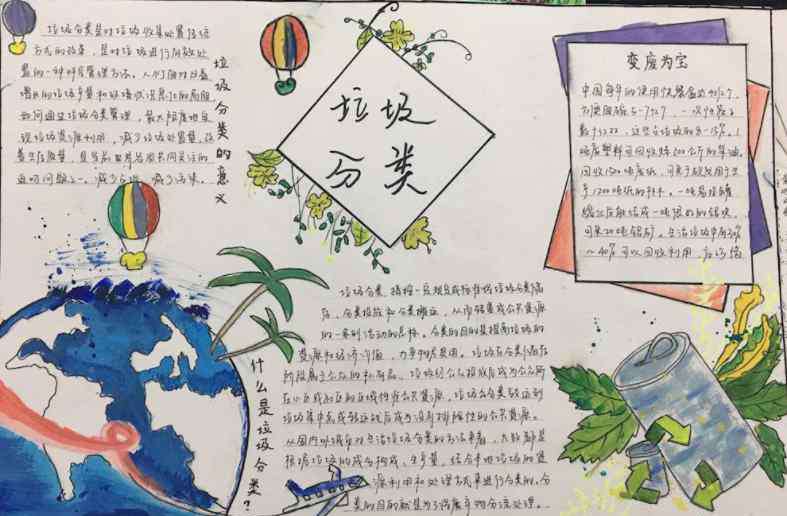 垃圾分类是对垃圾收集处置传统
方式的改革，是对垃圾进行有效处
置的一种科学管理方法。人们面对日益
增长的垃圾产量和环境状况恶化的局面
如何通过垃圾分类管理，最大限度地实
现垃圾资源利用，减少垃圾处置量，改
善生存环境
问题之一。减少占地，减少污染。
垃圾分类的意义
垃圾
分类
变废为宝
中国每年
回收1500吨废纸，可免于砍伐用于生
产1200吨纸的林木。一吨易拉罐
熔化后能结成一吨很好的铝块，
可采20吨铝矿。生活垃圾中有30%
~40%可以回收利用，应珍惜
什么是垃圾分类？
垃圾分类，指按一定规定或标准将垃圾分类储
存、分类投放和分类搬运，从而转变成公共资源
的一系列活动的总称。分类的目的是提高垃圾的
资源和经济价值，力争物尽其用。垃圾在分类储存
阶段属于公众的私有品，垃圾经公众投放后成为公众所
在小区或社区的区域性准公共资源，垃圾分类驳运到
垃圾集中点或转运站后成为没有排除性的公共资源。
从国内外城市对生活垃圾分类的方法来看，大致都是
根据垃圾的成分构成、产生量，结合本地垃圾的资
源利用和处理方式来进行分类的。分
类的目的就是为了将废弃物分流处理。